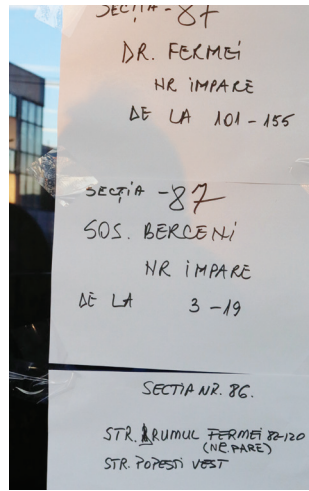 SECȚIA - 87
DR. FERMEI
NR IMPARE
DE LA 101 - 155
SECȚIA - 87
SOS. BERCENI
NR IMPARE
DE LA 3 - 19
SECTIA NR. 86.
STR. DRUMUL FERMEI 82-120
(NR. PARE)
STR. POPESTI VEST